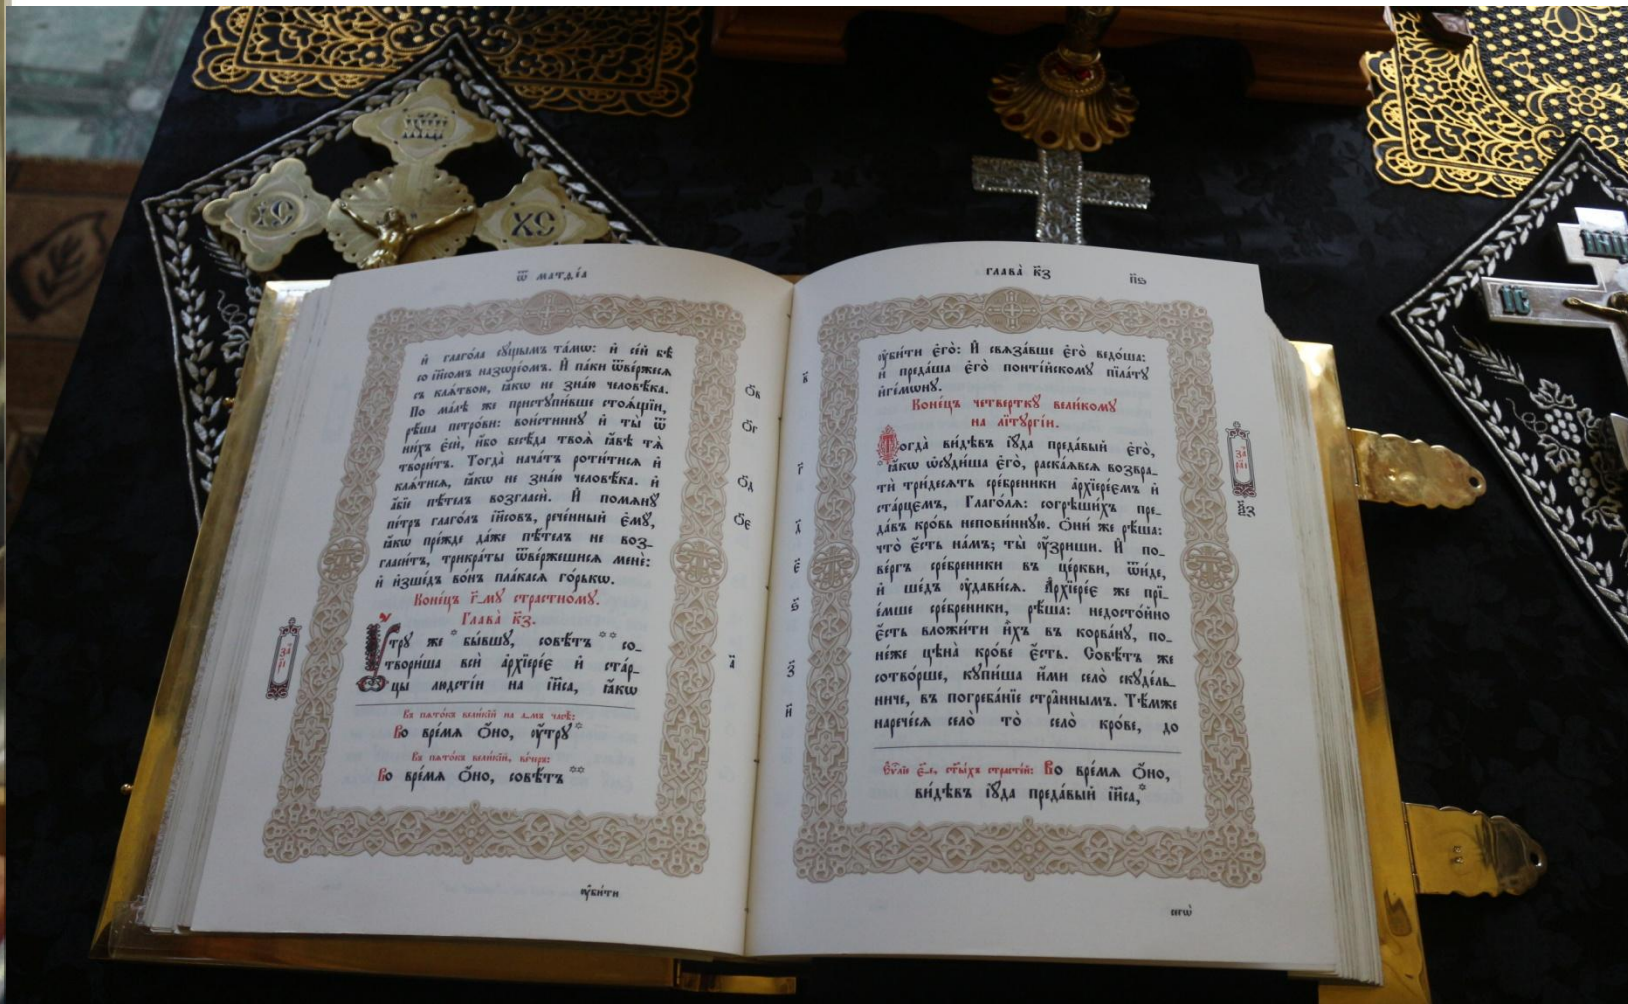 ІС
ХС
ѿ матѳе́а
и҆ глаго́ла сꙋ́щымъ та́мѡ: и҆ се́й бѣ̀
со і҆и҃сомъ назѡре́омъ. И҆ па́ки ѿве́ржеся
съ кля́твою, ꙗ҆́кѡ не зна́ю человѣ́ка.
По ма́лѣ же пристꙋпи́вше стоѧ́щїи,
рѣ́ша петро́ви: вои́стиннꙋ и҆ ты̀ ѿ
ни́хъ є҆сѝ, и҆́бо бесѣ́да твоѧ̀ ꙗ҆́вѣ тѧ̀
твори́тъ. Тогда̀ нача́тъ роти́тисѧ и҆
клѧ́тисѧ, ꙗ҆́кѡ не зна́ю человѣ́ка. и҆
а҆́бїе пѣ́тель возгласѝ. И҆ помѧнꙋ̀
пе́тръ глаго́лъ і҆и҃совъ, рече́нный є҆мꙋ̀,
ꙗ҆́кѡ пре́жде да́же пѣ́тель не воз-
гласи́тъ, трикра́ты ѿве́ржешисѧ менѐ:
и҆ и҆зше́дъ во́нъ пла́касѧ го́рькѡ.
Коне́цъ г҃-мꙋ стра́стномꙋ.
Глава̀ к҃з.
Оу҆́трꙋ же * бы́вшꙋ, совѣ́тъ ** со-
твори́ша всѝ а҆рхїере́є и҆ ста́р-
цы людсті́и на і҆и҃са, ꙗ҆́кѡ
Въ пѧто́къ вели́кїй на а҃-мъ часѣ̀:
Во вре́мѧ ѻ҆́но, ᲂу҆́трꙋ *
Въ пѧто́къ вели́кїй, ве́чера:
Во вре́мѧ ѻ҆́но, совѣ́тъ **
ѻ҃в
ѻ҃г
ѻ҃д
ѻ҃є
а҃
за҃ р҃і
ᲂу҆би́ти
глава̀ к҃з
п҃ѕ
ᲂу҆би́ти є҆го̀: И҆ свѧза́вше є҆го̀ ведо́ша:
и҆ преда́ша є҆го̀ понті́йскомꙋ пїла́тꙋ
и҆ге́мѡнꙋ.
Коне́цъ четверткꙋ̀ вели́комꙋ
на лїтꙋргі́и.
Тогда̀ ви́дѣвъ і҆ꙋ́да преда́вый є҆го̀,
* ꙗ҆́кѡ ѡ҆сꙋди́ша є҆го̀, раска́ѧвсѧ возвра-
тѝ три́десѧть сре́бреники а҆рхїере́ємъ и҆
ста́рцємъ, Глаго́лѧ: согрѣши́хъ пре-
да́въ кро́вь непови́ннꙋю. Ѻ҆ни́ же рѣ́ша:
что̀ є҆́сть на́мъ; ты̀ ᲂу҆́зриши. И҆ по-
ве́ргъ сре́бреники въ це́ркви, ѿи́де,
и҆ ше́дъ ᲂу҆дави́сѧ. А҆рхїере́є же прї-
е́мше сре́бреники, рѣ́ша: недосто́йно
є҆́сть вложи́ти и҆̀хъ въ корва́нꙋ, по-
не́же цѣна̀ кро́ве є҆́сть. Совѣ́тъ же
сотво́рше, кꙋпи́ша и҆́ми село̀ скꙋде́ль-
ниче, въ погреба́нїе стра̑ннымъ. Тѣ́мже
нарече́сѧ село̀ то̀ село̀ кро́ве, до
Є҆ѵⷢ҇лїе є҃-е, ст҃ы́хъ страсте́й: Во вре́мѧ ѻ҆́но,
ви́дѣвъ і҆ꙋ́да преда́вый і҆и҃са, *
в҃
г҃
д҃
є҃
ѕ҃
з҃
и҃
за҃ р҃аі
негѡ̀
ІС